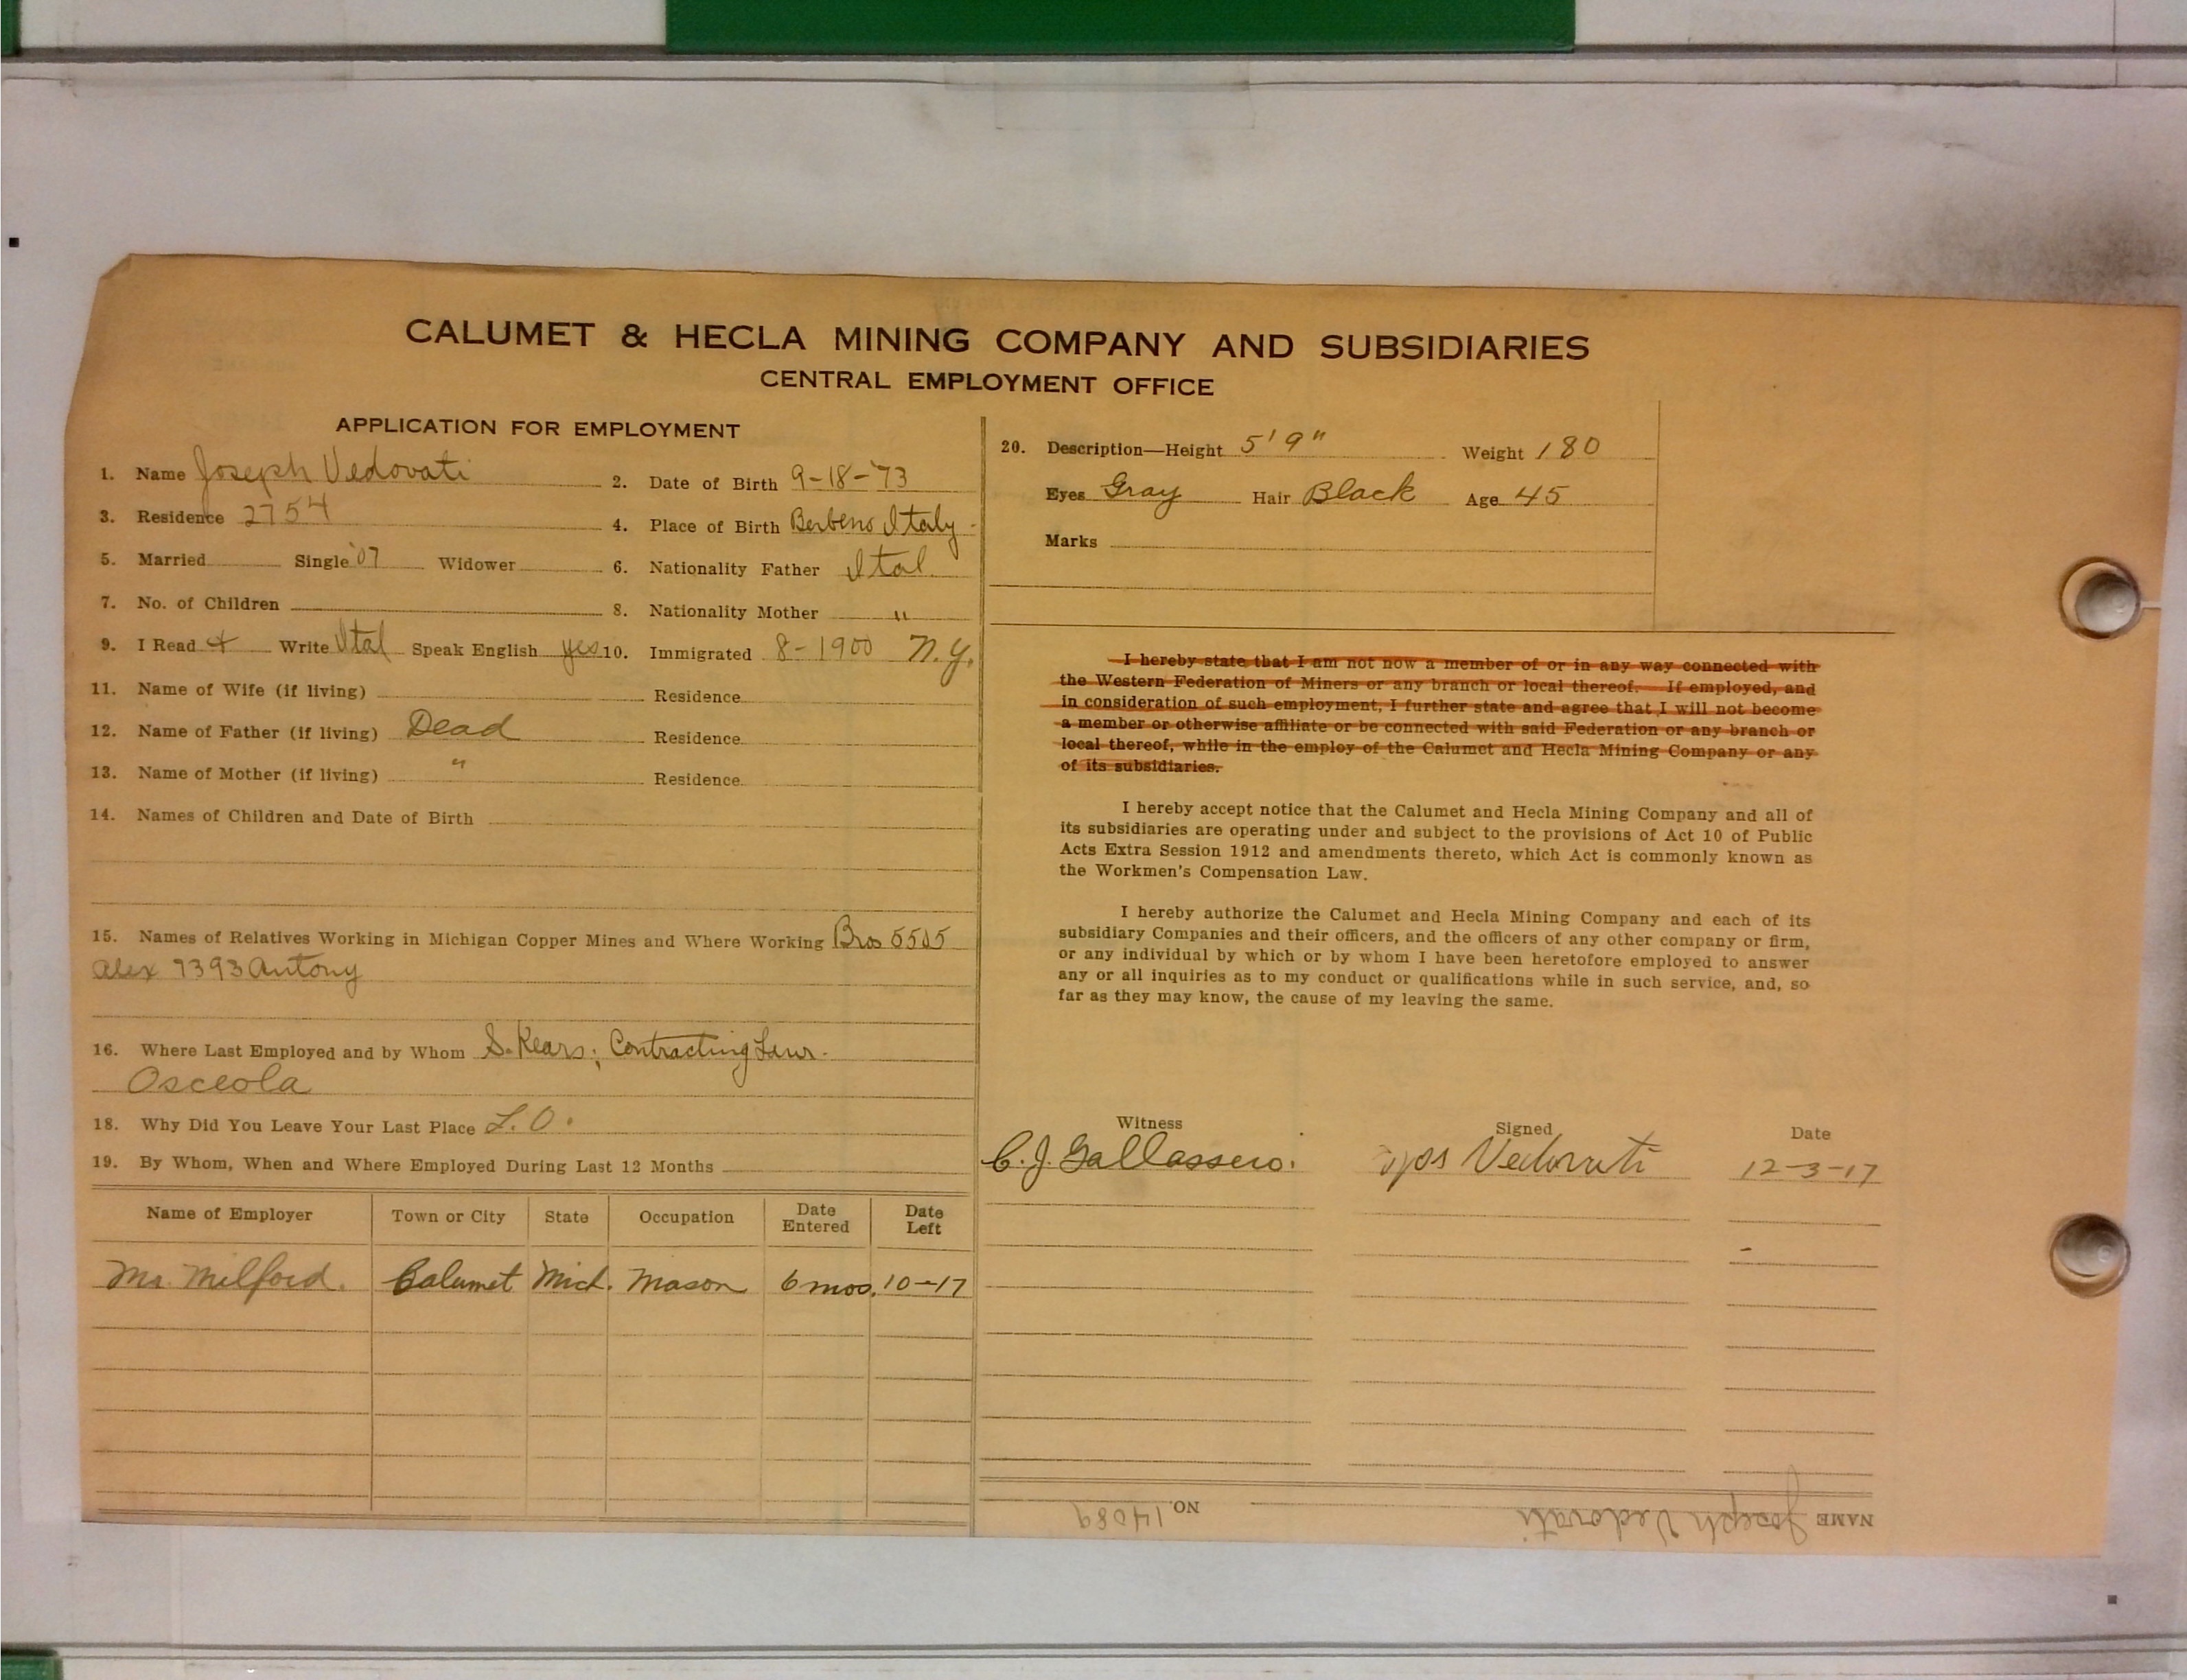 CALUMET & HECLA MINING COMPANY AND SUBSIDIARIES
CENTRAL EMPLOYMENT OFFICE
APPLICATION FOR EMPLOYMENT
1. Name Joseph Vedovati 2. Date of Birth 9-18-'73
3. Residence 2754 4. Place of Birth Berbeno Italy -
5. Married Single '07 Widower 6. Nationality Father Ital.
7. No. of Children 8. Nationality Mother "
9. I Read + Write Ital Speak English yes 10. Immigrated 8-1900 N.Y.
11. Name of Wife (if living) Residence
12. Name of Father (if living) Dead Residence
13. Name of Mother (if living) " Residence
14. Names of Children and Date of Birth
15. Names of Relatives Working in Michigan Copper Mines and Where Working Bros 5505
Alex 7393 Antony
16. Where Last Employed and by Whom Contracting
Osceola
18. Why Did You Leave Your Last Place L.O.
19. By Whom, When and Where Employed During Last 12 Months
Name of Employer Town or City State Occupation Date Entered Date Left
Mr. Milford. Calumet Mich. Mason 6 mos. 10-17
20. Description—Height 5' 9" Weight 180
Eyes Gray Hair Black Age 45
Marks
I hereby state that I am not now a member of or in any way connected with
the Western Federation of Miners or any branch or local thereof. If employed, and
in consideration of such employment, I further state and agree that I will not become
a member or otherwise affiliate or be connected with said Federation or any branch or
local thereof, while in the employ of the Calumet and Hecla Mining Company or any
of its subsidiaries.
I hereby accept notice that the Calumet and Hecla Mining Company and all of
its subsidiaries are operating under and subject to the provisions of Act 10 of Public
Acts Extra Session 1912 and amendments thereto, which Act is commonly known as
the Workmen's Compensation Law.
I hereby authorize the Calumet and Hecla Mining Company and each of its
subsidiary Companies and their officers, and the officers of any other company or firm,
or any individual by which or by whom I have been heretofore employed to answer
any or all inquiries as to my conduct or qualifications while in such service, and, so
far as they may know, the cause of my leaving the same.
Witness Signed Date
C. J. Gallassero. Vedovati 12-3-17
NAME Joseph Vedovati NO. 14089